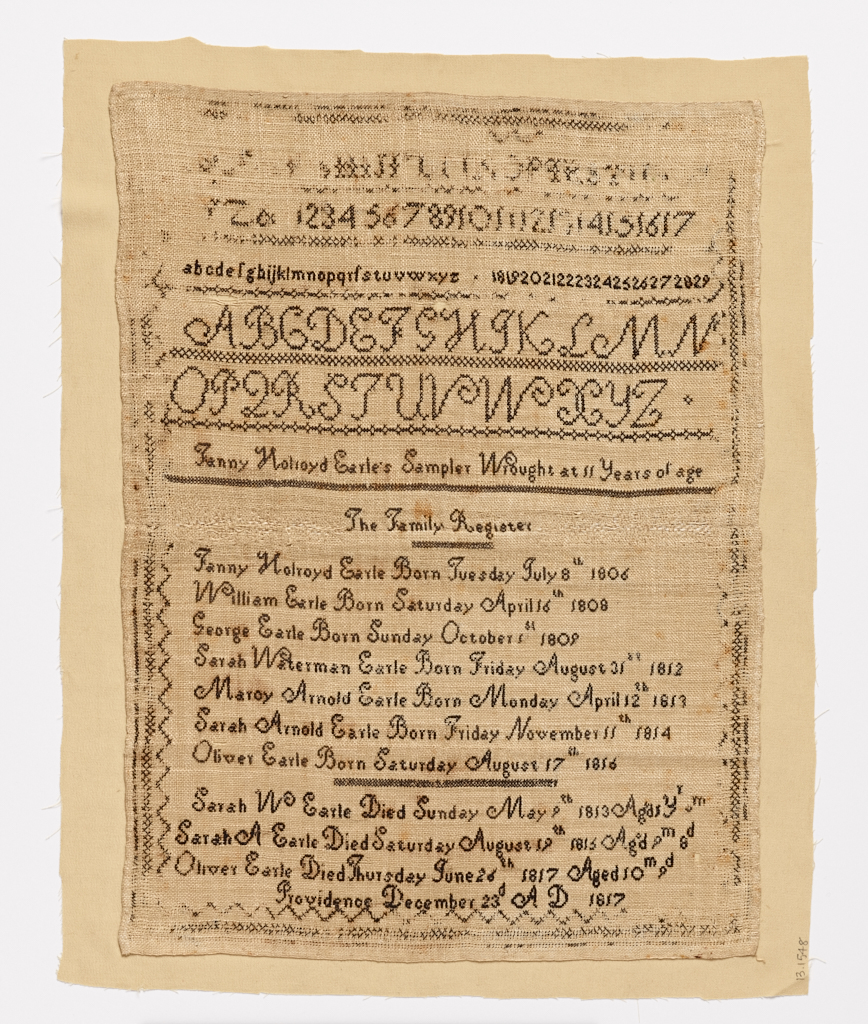 OPQRST
Z & 1234567891011121314151617
abcdefghijklmnopqrſstuvwxyz 181920212223242526272829
ABCDEFGHIKLMN
OPQRSTUVWXYZ
Fanny Holroyd Earle's Sampler Wrought at 11 Years of age
The Family Register
Fanny Holroyd Earle Born Tuesday July 8th 1806
William Earle Born Saturday April 16th 1808
George Earle Born Sunday October 1st 1809
Sarah Waterman Earle Born Friday August 31st 1812
Marcy Arnold Earle Born Monday April 12th 1813
Sarah Arnold Earle Born Friday November 11th 1814
Oliver Earle Born Saturday August 17th 1816
Sarah W Earle Died Sunday May 9th 1813 Aged
Sarah A Earle Died Saturday August 19th 1815 Agd 9m 8d
Oliver Earle Died Thursday June 26th 1817 Aged 10m 9d
Providence December 23d A D 1817
13.1548